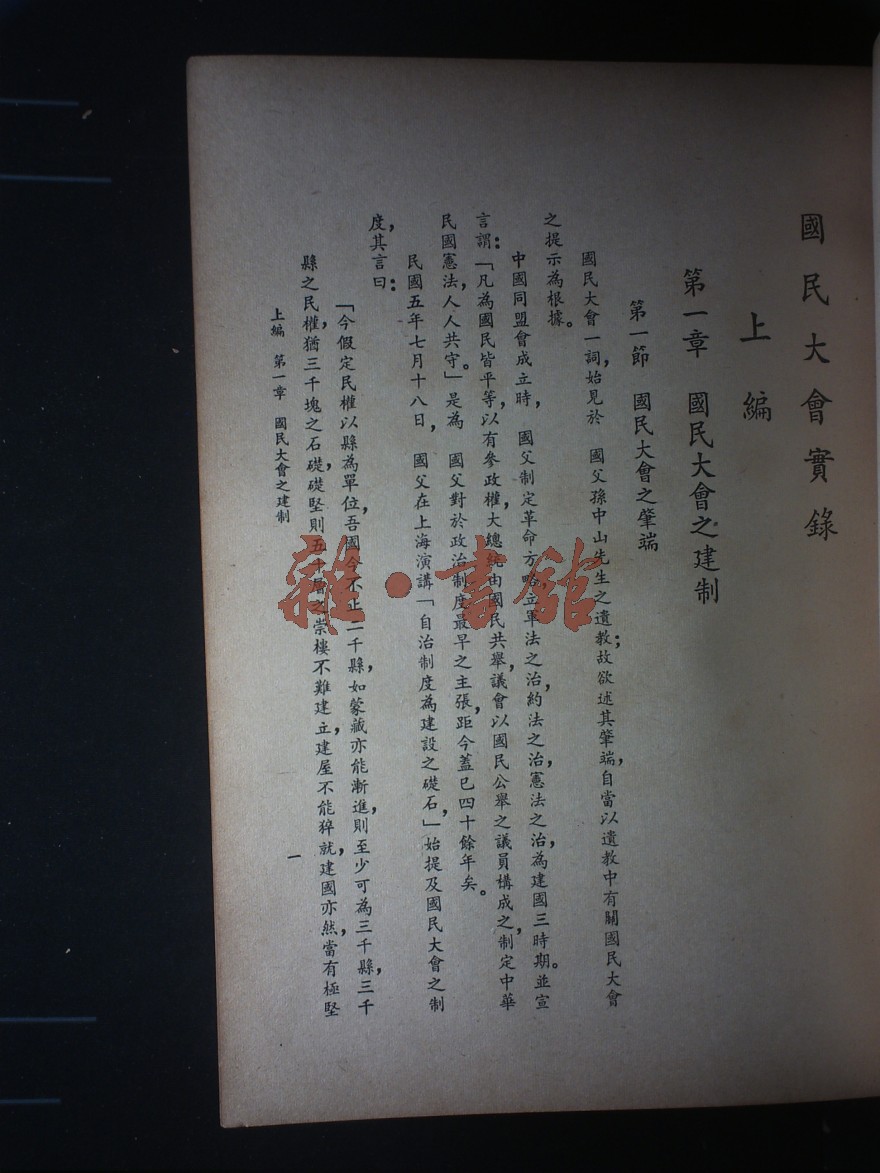 國民大會實錄
上編
第一章 國民大會之建制
第一節 國民大會之肇端
國民大會一詞，始見於 國父孫中山先生之遺教；故欲述其肇端，自當以遺教中有關國民大會
之提示為根據。
中國同盟會成立時， 國父制定革命方略，立軍法之治，約法之治，憲法之治，為建國三時期。並宣
言謂：「凡為國民皆平等，以有參政權，大總統由國民共舉，議會以國民公舉之議員構成之，制定中華
民國憲法，人人共守。」是為 國父對於政治制度最早之主張，距今蓋已四十餘年矣。
民國五年七月十八日， 國父在上海演講「自治制度為建設之礎石，」始提及國民大會之制
度，其言曰：
「今假定民權以縣為單位，吾國今不止二千縣，如蒙藏亦能漸進，則至少可為三千縣，三千
縣之民權，猶三千塊之石礎，礎堅則五十層之崇樓不難建立，建屋不能猝就，建國亦然，當有極堅
上編 第一章 國民大會之建制
一
雜·書館